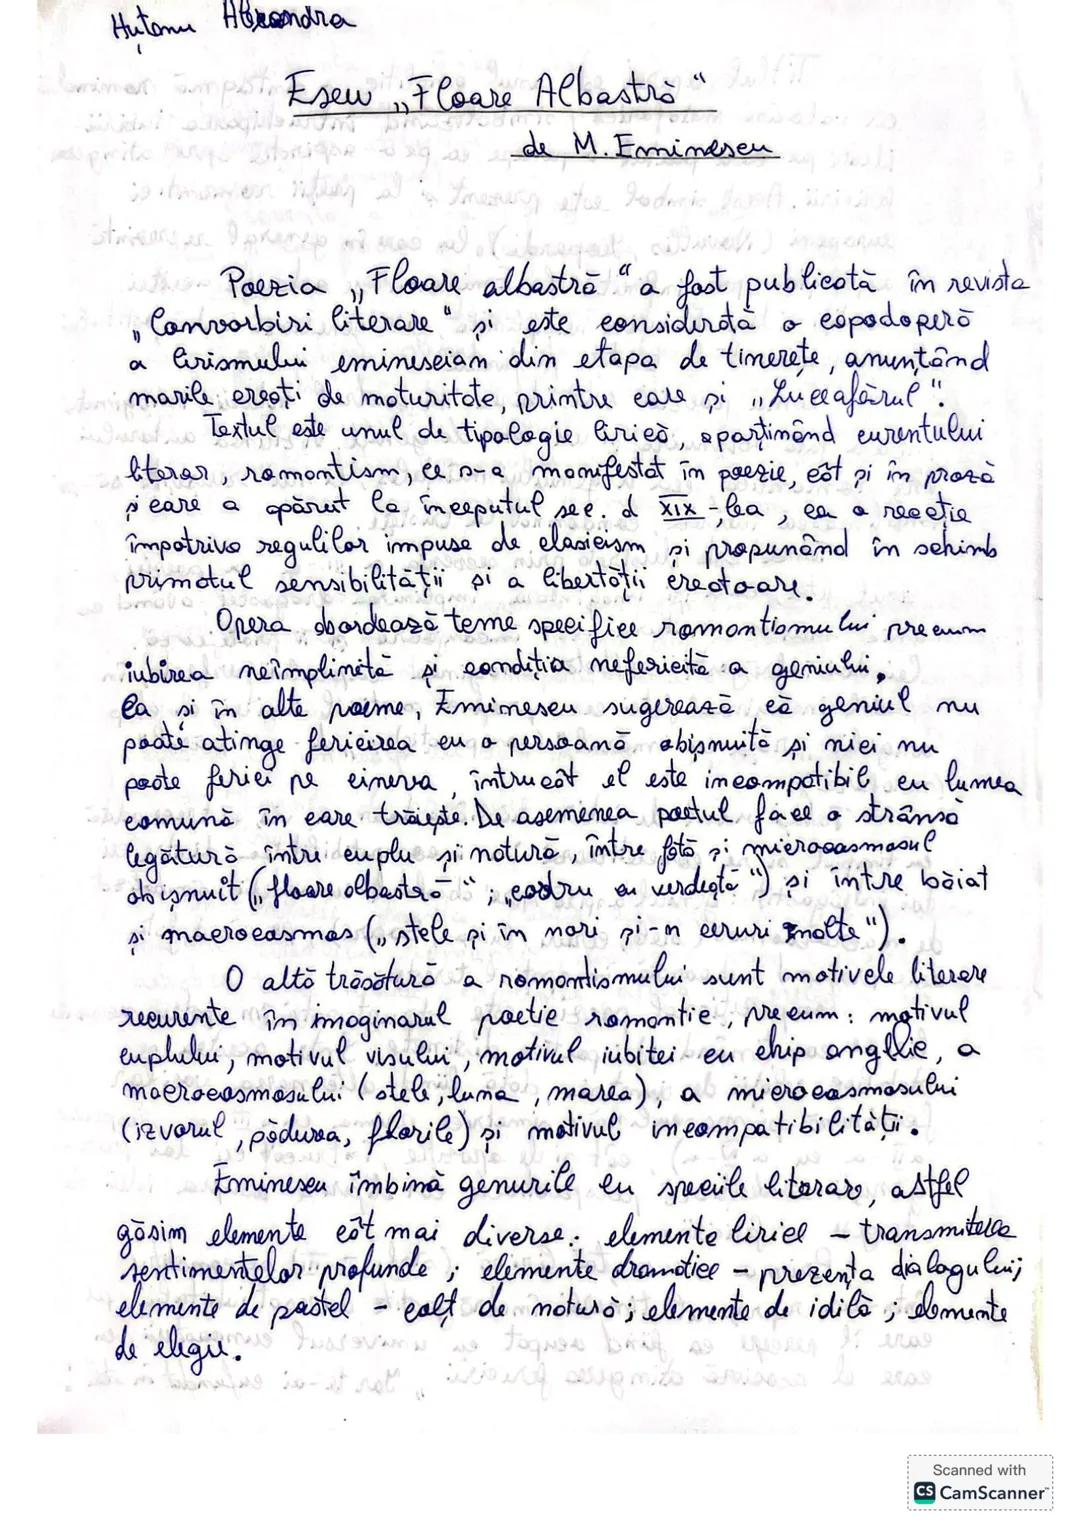 Huțanu Alexandra
Eseu „Floare Albastră"
de M. Eminescu
Poezia „Floare albastră" a fost publicată în revista
„Convorbiri literare" și este considerată o capodoperă
a lirismului eminescian din etapa de tinerețe, anunțând
marile creații de maturitate, printre care și „Luceafărul".
Textul este unul de tipologie lirică, aparținând curentului
literar, romantism, ce s-a manifestat în poezie, cât și în proză
și care a apărut la începutul sec. al XIX-lea, ca o reacție
împotriva regulilor impuse de clasicism și propunând în schimb
primatul sensibilității și a libertății creatoare.
Opera abordează teme specifice romantismului precum
iubirea neîmplinită și condiția nefericită a geniului.
Ca și în alte poeme, Eminescu sugerează că geniul nu
poate atinge fericirea cu o persoană obișnuită și nici nu
poate ferici pe cineva, întrucât el este incompatibil cu lumea
comună în care trăiește. De asemenea poetul face o strânsă
legătură între cuplu și natură, între fată și microcosmosul
obișnuit („floare albastră"; „codru cu verdeață") și între băiat
și macrocosmos („stele și în nori și-n ceruri nalte").
O altă trăsătură a romantismului sunt motivele literare
recurente în imaginarul poetic romantic, precum: motivul
cuplului, motivul visului, motivul iubitei cu chip angelic, a
macrocosmosului (stele, luna, marea), a microcosmosului
(izvorul, pădurea, florile) și motivul incompatibilității.
Eminescu îmbină genurile cu speciile literare, astfel
găsim elemente cât mai diverse: elemente lirice – transmiterea
sentimentelor profunde; elemente dramatice – prezența dialogului;
elemente de pastel – colț de natură; elemente de idilă; elemente
de elegie.
Scanned with
CS CamScanner